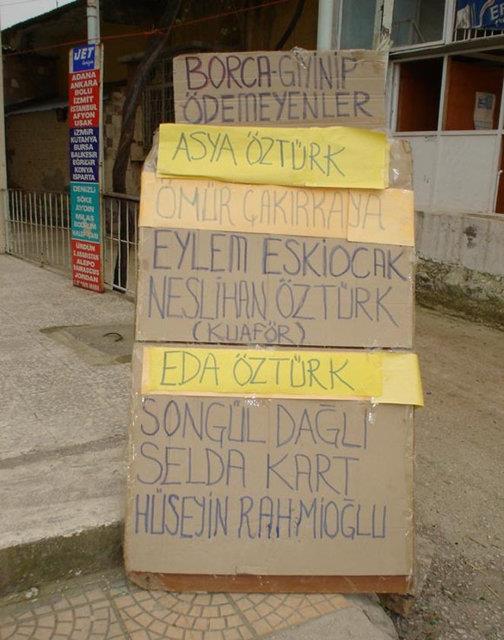 BORCA-GİYİNİP
ÖDEMEYENLER
ASYA ÖZTÜRK
ÖMÜR ÇAKIRKAYA
EYLEM ESKİOCAK
NESLİHAN ÖZTÜRK
(KUAFÖR)
EDA ÖZTÜRK
SONGÜL DAĞLI
SELDA KART
HÜSEYİN RAHMİOĞLU
JET
ADANA
ANKARA
BOLU
İZMİT
İSTANBUL
AFYON
UŞAK
İZMİR
KÜTAHYA
BURSA
BALIKESİR
EĞİRDİR
KONYA
ISPARTA
DENİZLİ
SÖKE
AYDIN
MİLAS
BODRUM
ÜRDÜN
ALEPO
DAMASCUS